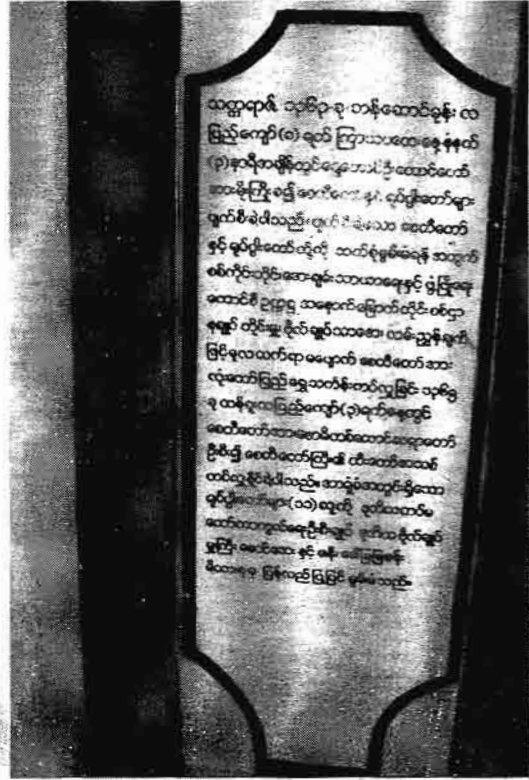 သက္ကရာဇ် ၁၃၆၃-ခု တန်ဆောင်မုန်း လ
ပြည့်ကျော် (၈) ရက် ကြာသပတေးနေ့ နံနက်
(၃)နာရီအချိန်တွင် ဦးထောင်
မိုးကြိုး ၍ စေတီတော်နှင့် ရုပ်ပွါးတော်များ
ပျက်စီးခဲ့ပါသည်။ ပျက်စီးခဲ့သော စေတီတော်
နှင့် ရုပ်ပွါးတော်တို့ကို သက်စုံမွမ်းမံရန် အတွက်
စစ်ကိုင်းတိုင်းအေးချမ်းသာယာရေးနှင့် ဖွံ့ဖြိုးရေး
ကောင်စီ ဥက္ကဋ္ဌ အနောက်မြောက်တိုင်း စစ်ဌာ
နချုပ် တိုင်းမှူး ဗိုလ်ချုပ်သာအေး လမ်းညွှန်ချက်
ဖြင့် မူလလက်ရာ မပျောက် စေတီတော်အား
လုံးတော်ပြည့်ရွှေသင်္ကန်းကပ်လှူခြင်း ၁၃၆၄
ခု တန်ခူးလပြည့်ကျော်(၃)ရက်နေ့တွင်
စေတီတော်အား ဆရာတော်
ဦးစီး၍ စေတီတော်ကြီး၏ ထီးတော်အသစ်
တင်လှူနိုင်ခဲ့ပါသည်။ အာရုံခံအတွင်းရှိသော
ရုပ်ပွါးတော်များ (၁၁) ဆူကို ဒုတိယတပ်မ
တော်ကာကွယ်ရေးဦးစီးချုပ် ဒုတိယဗိုလ်ချုပ်
မှူးကြီး မောင်အေး နှင့် ဇနီး ဒေါ်မြမြစန်း
မိသားစုမှ ပြန်လည်ပြုပြင် မွမ်းမံသည်။